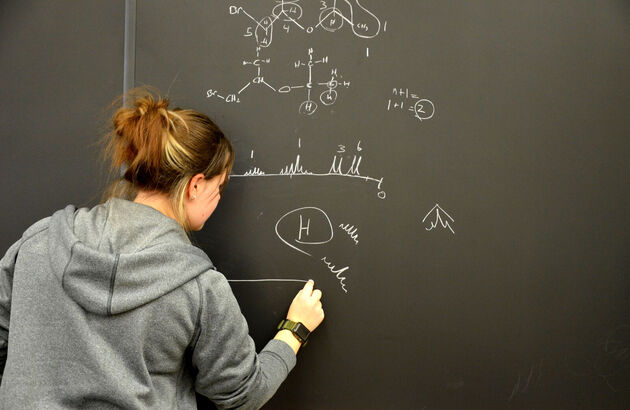 Br H H 3 H 1
5 H 4 O CH3
1
H H
H-C-H H-C-H H
Br CH2 CH O C C-H
H H
n+1=
1+1=2
1 1 3 6
0
H